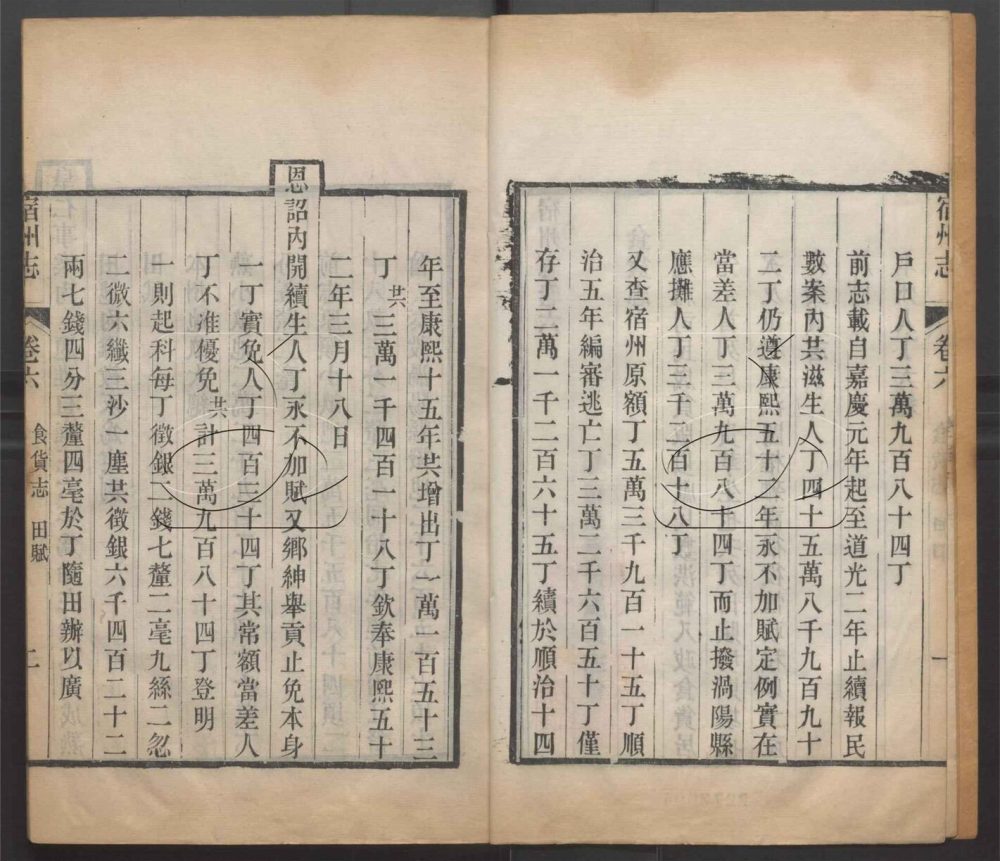 宿州志 卷六 一
戶口人丁三萬九百八十四丁
前志載自嘉慶元年起至道光二年止續報民
數案內共滋生人丁四十五萬八千九百九十
二丁仍遵康熙五十二年永不加賦定例實在
當差人丁三萬九百八十四丁而止撥渦陽縣
應攤人丁三千二百十八丁
又查宿州原額丁五萬三千九百一十五丁順
治五年編審逃亡丁三萬二千六百五十丁僅
存丁二萬一千二百六十五丁續於順治十四
年至康熙十五年共增出丁一萬一百五十三
丁共三萬一千四百一十八丁欽奉康熙五十
二年三月十八日
恩詔內開續生人丁永不加賦又鄉紳舉貢止免本身
一丁實免人丁四百三十四丁其常額當差人
丁不准優免共計三萬九百八十四丁登明
一則起科每丁徵銀二錢七釐二毫九絲二忽
二微六纖三沙一塵共徵銀六千四百二十二
兩七錢四分三釐四毫於丁隨田辦以廣
宿州志 卷六 食貨志 田賦 二